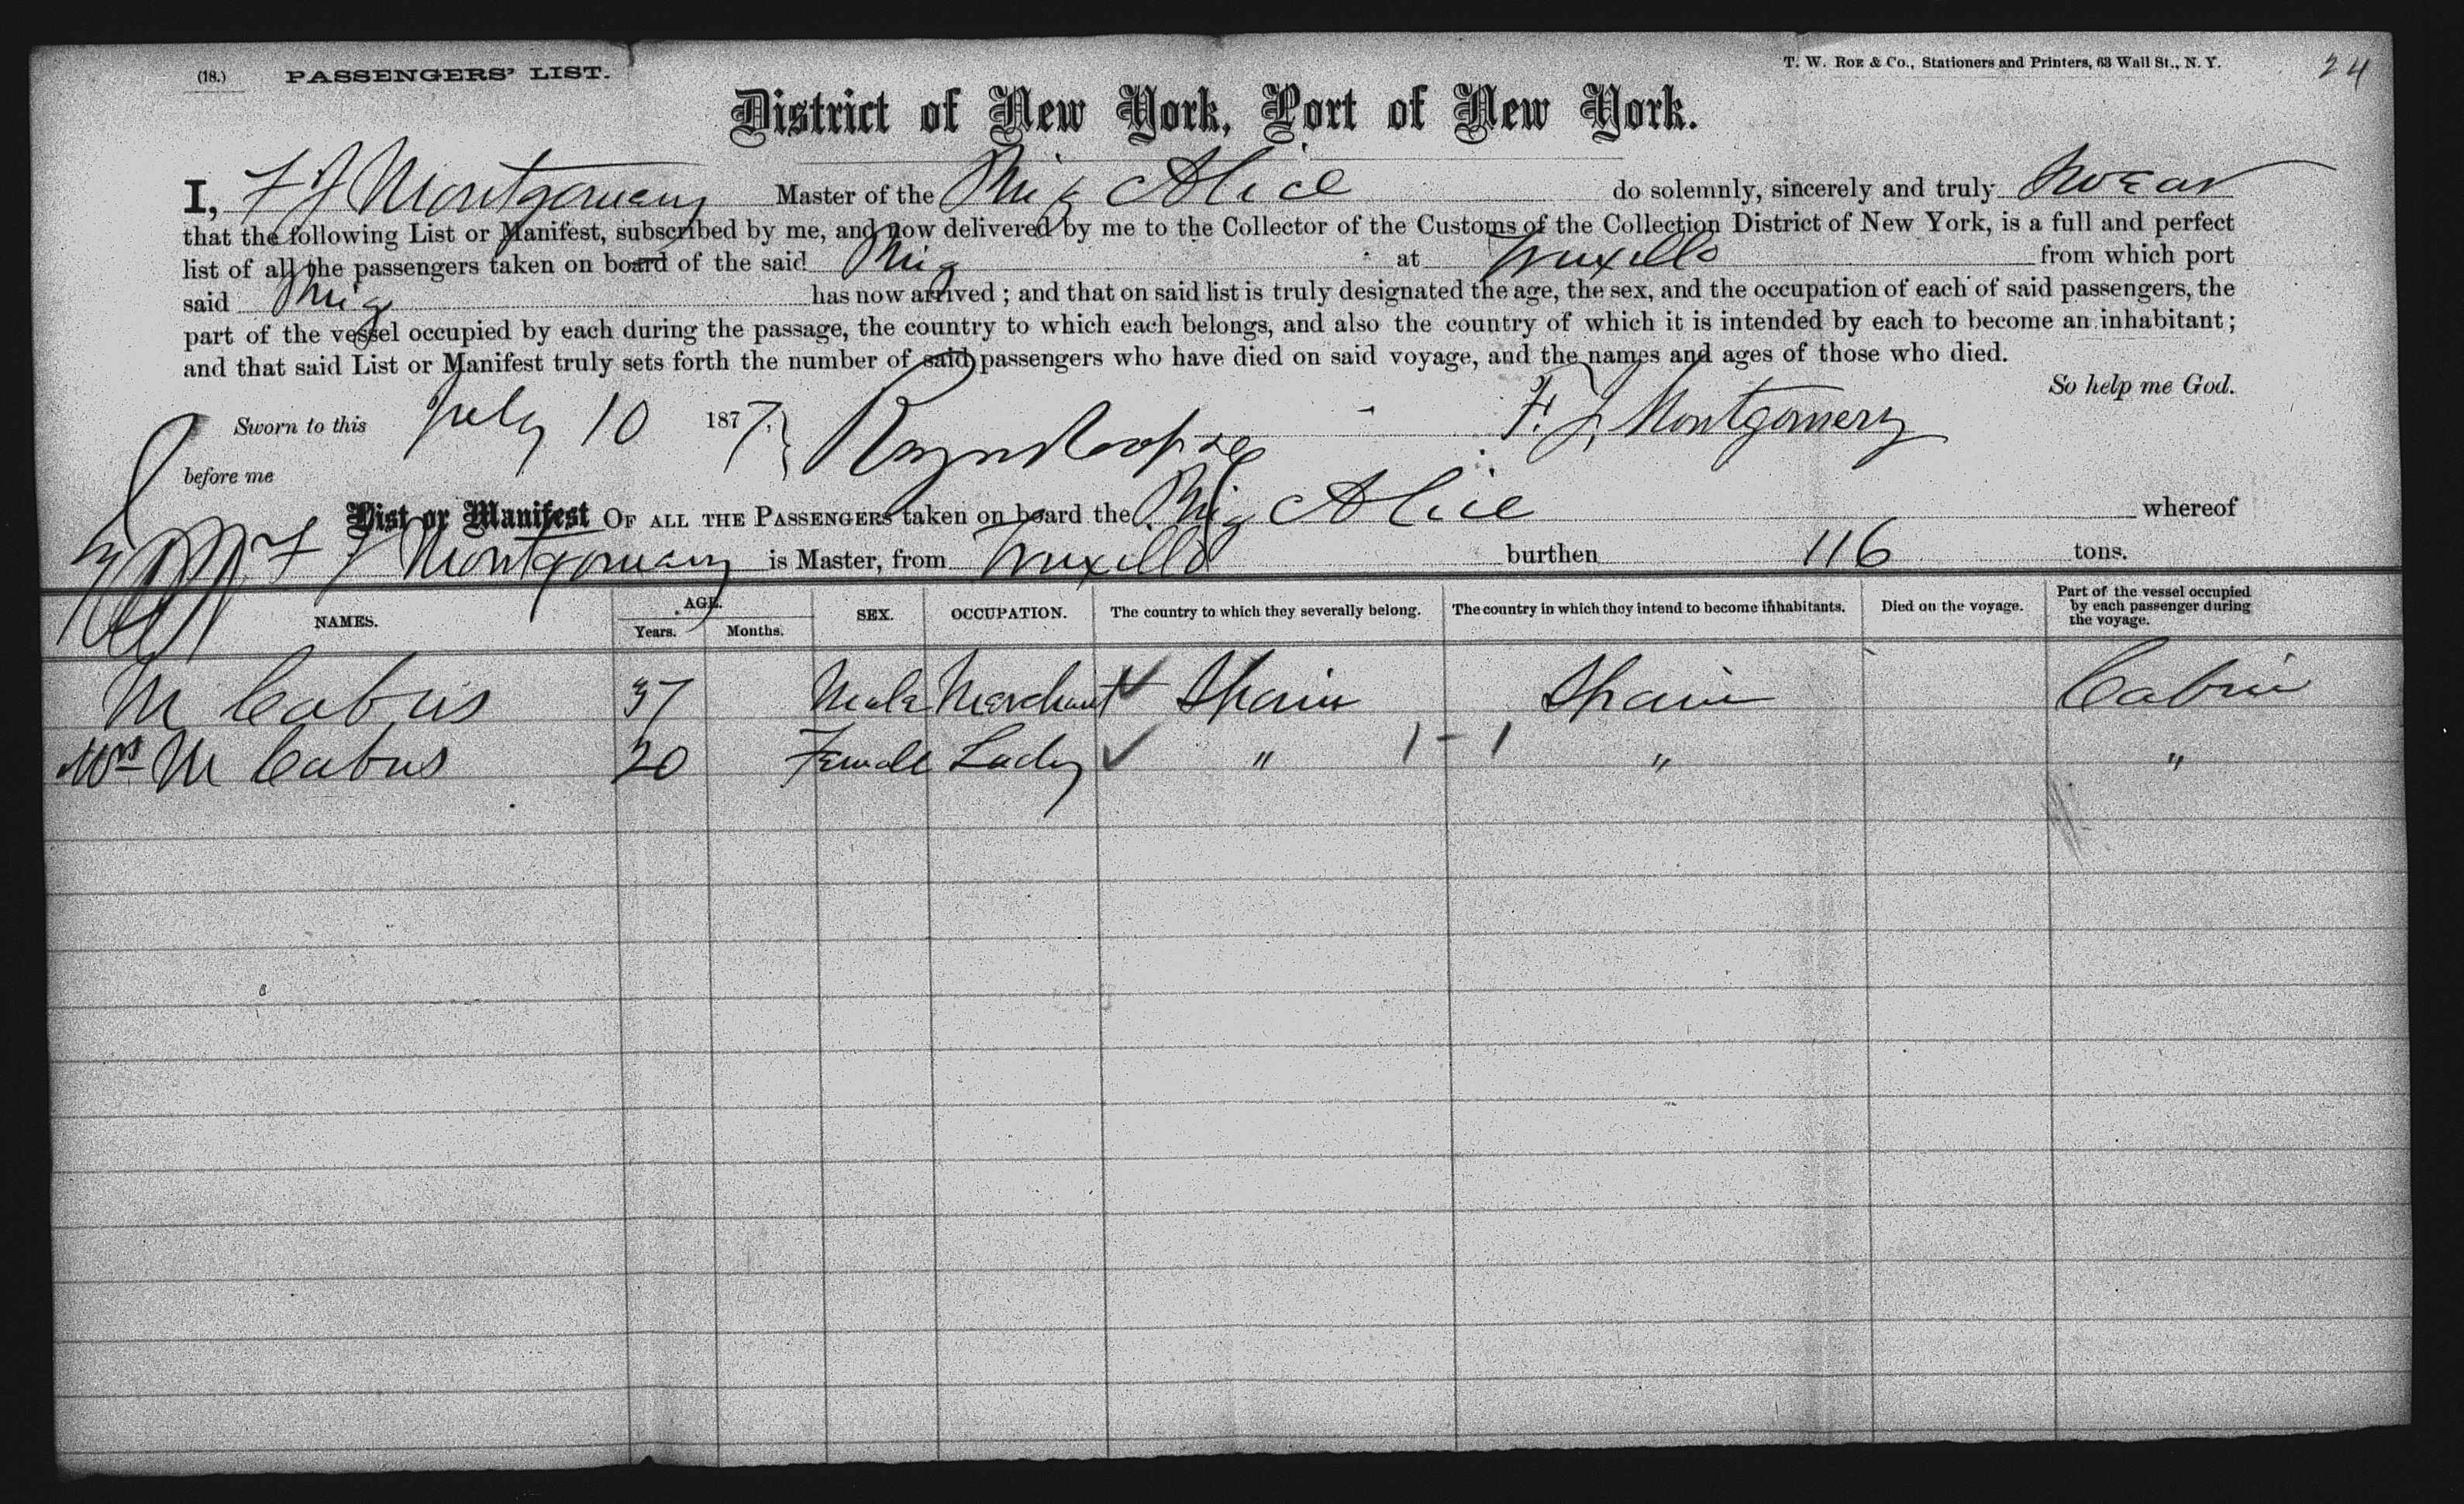 (18.) PASSENGERS' LIST. T. W. ROE & Co., Stationers and Printers, 63 Wall St., N. Y. 24
District of New York, Port of New York.
I, F J Montgomery Master of the Brig Alice do solemnly, sincerely and truly swear
that the following List or Manifest, subscribed by me, and now delivered by me to the Collector of the Customs of the Collection District of New York, is a full and perfect
list of all the passengers taken on board of the said Brig at Truxillo from which port
said Brig has now arrived; and that on said list is truly designated the age, the sex, and the occupation of each of said passengers, the
part of the vessel occupied by each during the passage, the country to which each belongs, and also the country of which it is intended by each to become an inhabitant;
and that said List or Manifest truly sets forth the number of said passengers who have died on said voyage, and the names and ages of those who died.
So help me God.
Sworn to this July 10 1877. F. J. Montgomery
before me
List or Manifest OF ALL THE PASSENGERS taken on board the Brig Alice whereof
F J Montgomery is Master, from Truxillo burthen 116 tons.
NAMES. AGE. Years. Months. SEX. OCCUPATION. The country to which they severally belong. The country in which they intend to become inhabitants. Died on the voyage. Part of the vessel occupied by each passenger during the voyage.
M Cabus 37 Male Merchant ✓ Spain Spain Cabin
Mrs M Cabus 20 Female Lady ✓ " 1-1 " "